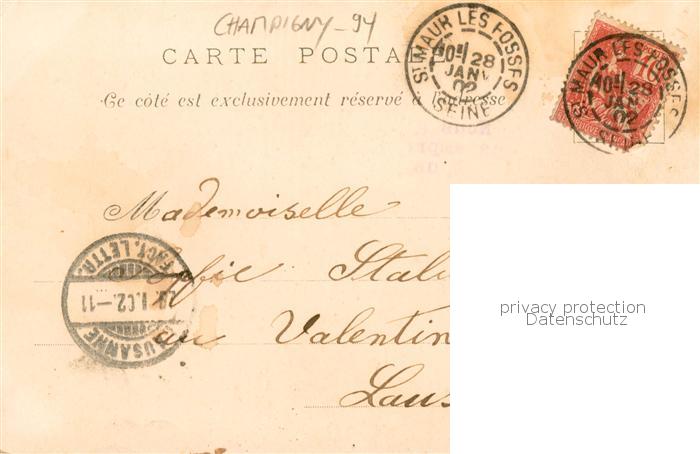 CHAMPIGNY-94
CARTE POSTALE
Ce côté est exclusivement réservé à l'adresse
ST MAUR LES FOSSES
28
JANV
02
SEINE
ST MAUR LES FOSSES
28
JANV
02
SEINE
Mademoiselle
Stali
au Valentin
Laus
LAUSANNE
FACT. LETTR.
I.02.-11
privacy protection
Datenschutz